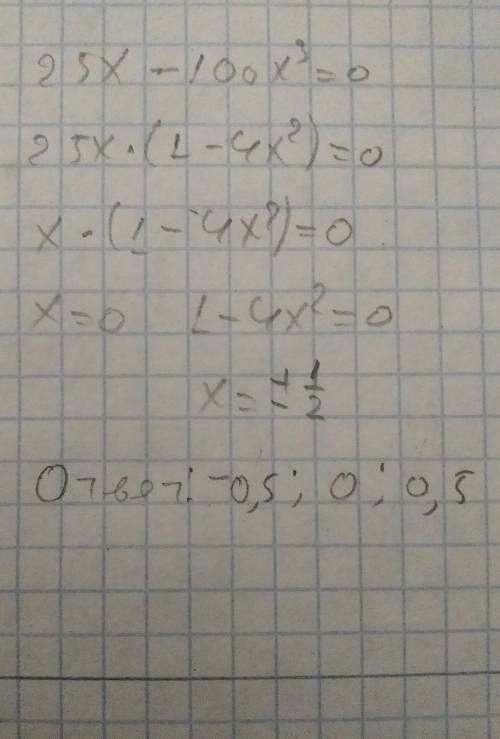 25x - 100x³ = 0
25x · (1 - 4x²) = 0
x · (1 - 4x²) = 0
x = 0 1 - 4x² = 0
x = ± 1/2
Ответ: -0,5; 0; 0,5